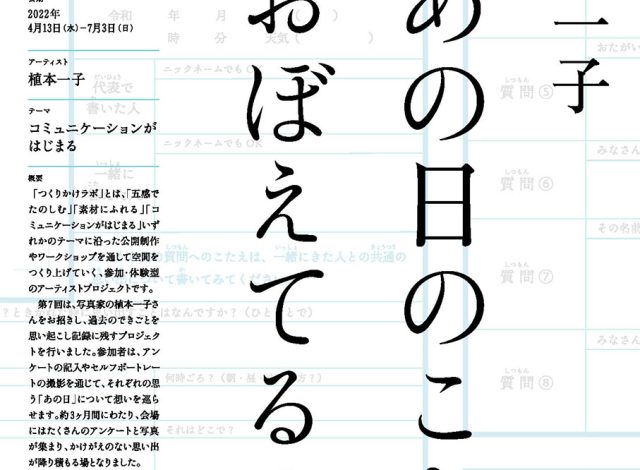 一子
あの日のこ
おぼえてる
2022年
4月13日(水)–7月3日(日)
アーティスト
植本一子
テーマ
コミュニケーションが
はじまる
概要
「つくりかけラボ」とは、「五感で
たのしむ」「素材にふれる」「コ
ミュニケーションがはじまる」いず
れかのテーマに沿った公開制作
やワークショップを通して空間を
つくり上げていく、参加・体験型
のアーティストプロジェクトです。
第7回は、写真家の植本一子さ
んをお招きし、過去のできごとを
思い起こし記録に残すプロジェク
トを行いました。参加者は、アン
ケートの記入やセルフポートレー
トの撮影を通じて、それぞれの思
う「あの日」について想いを巡ら
せます。約3ヶ月間にわたり、会場
にはたくさんのアンケートと写真
が集まり、かけがえのない思い出
が降り積もる場となりました。
令和 年 月 日( )
時 分 天気( )
だいひょう
代表で
書いた人
ニックネームでもO
ニックネームでもOK
いっしょ
一緒に
しつもん
質問⑤
しつもん
質問⑥
しつもん
質問⑦
しつもん
質問⑧
おたがい
みなさん
その名前
みなさん
質問へのこたえは、一緒にきた人との共通の
いて書いてみてくだ
なんですか?(ひとことで)
何時ごろ?(朝・昼
方?)
それはどこで?